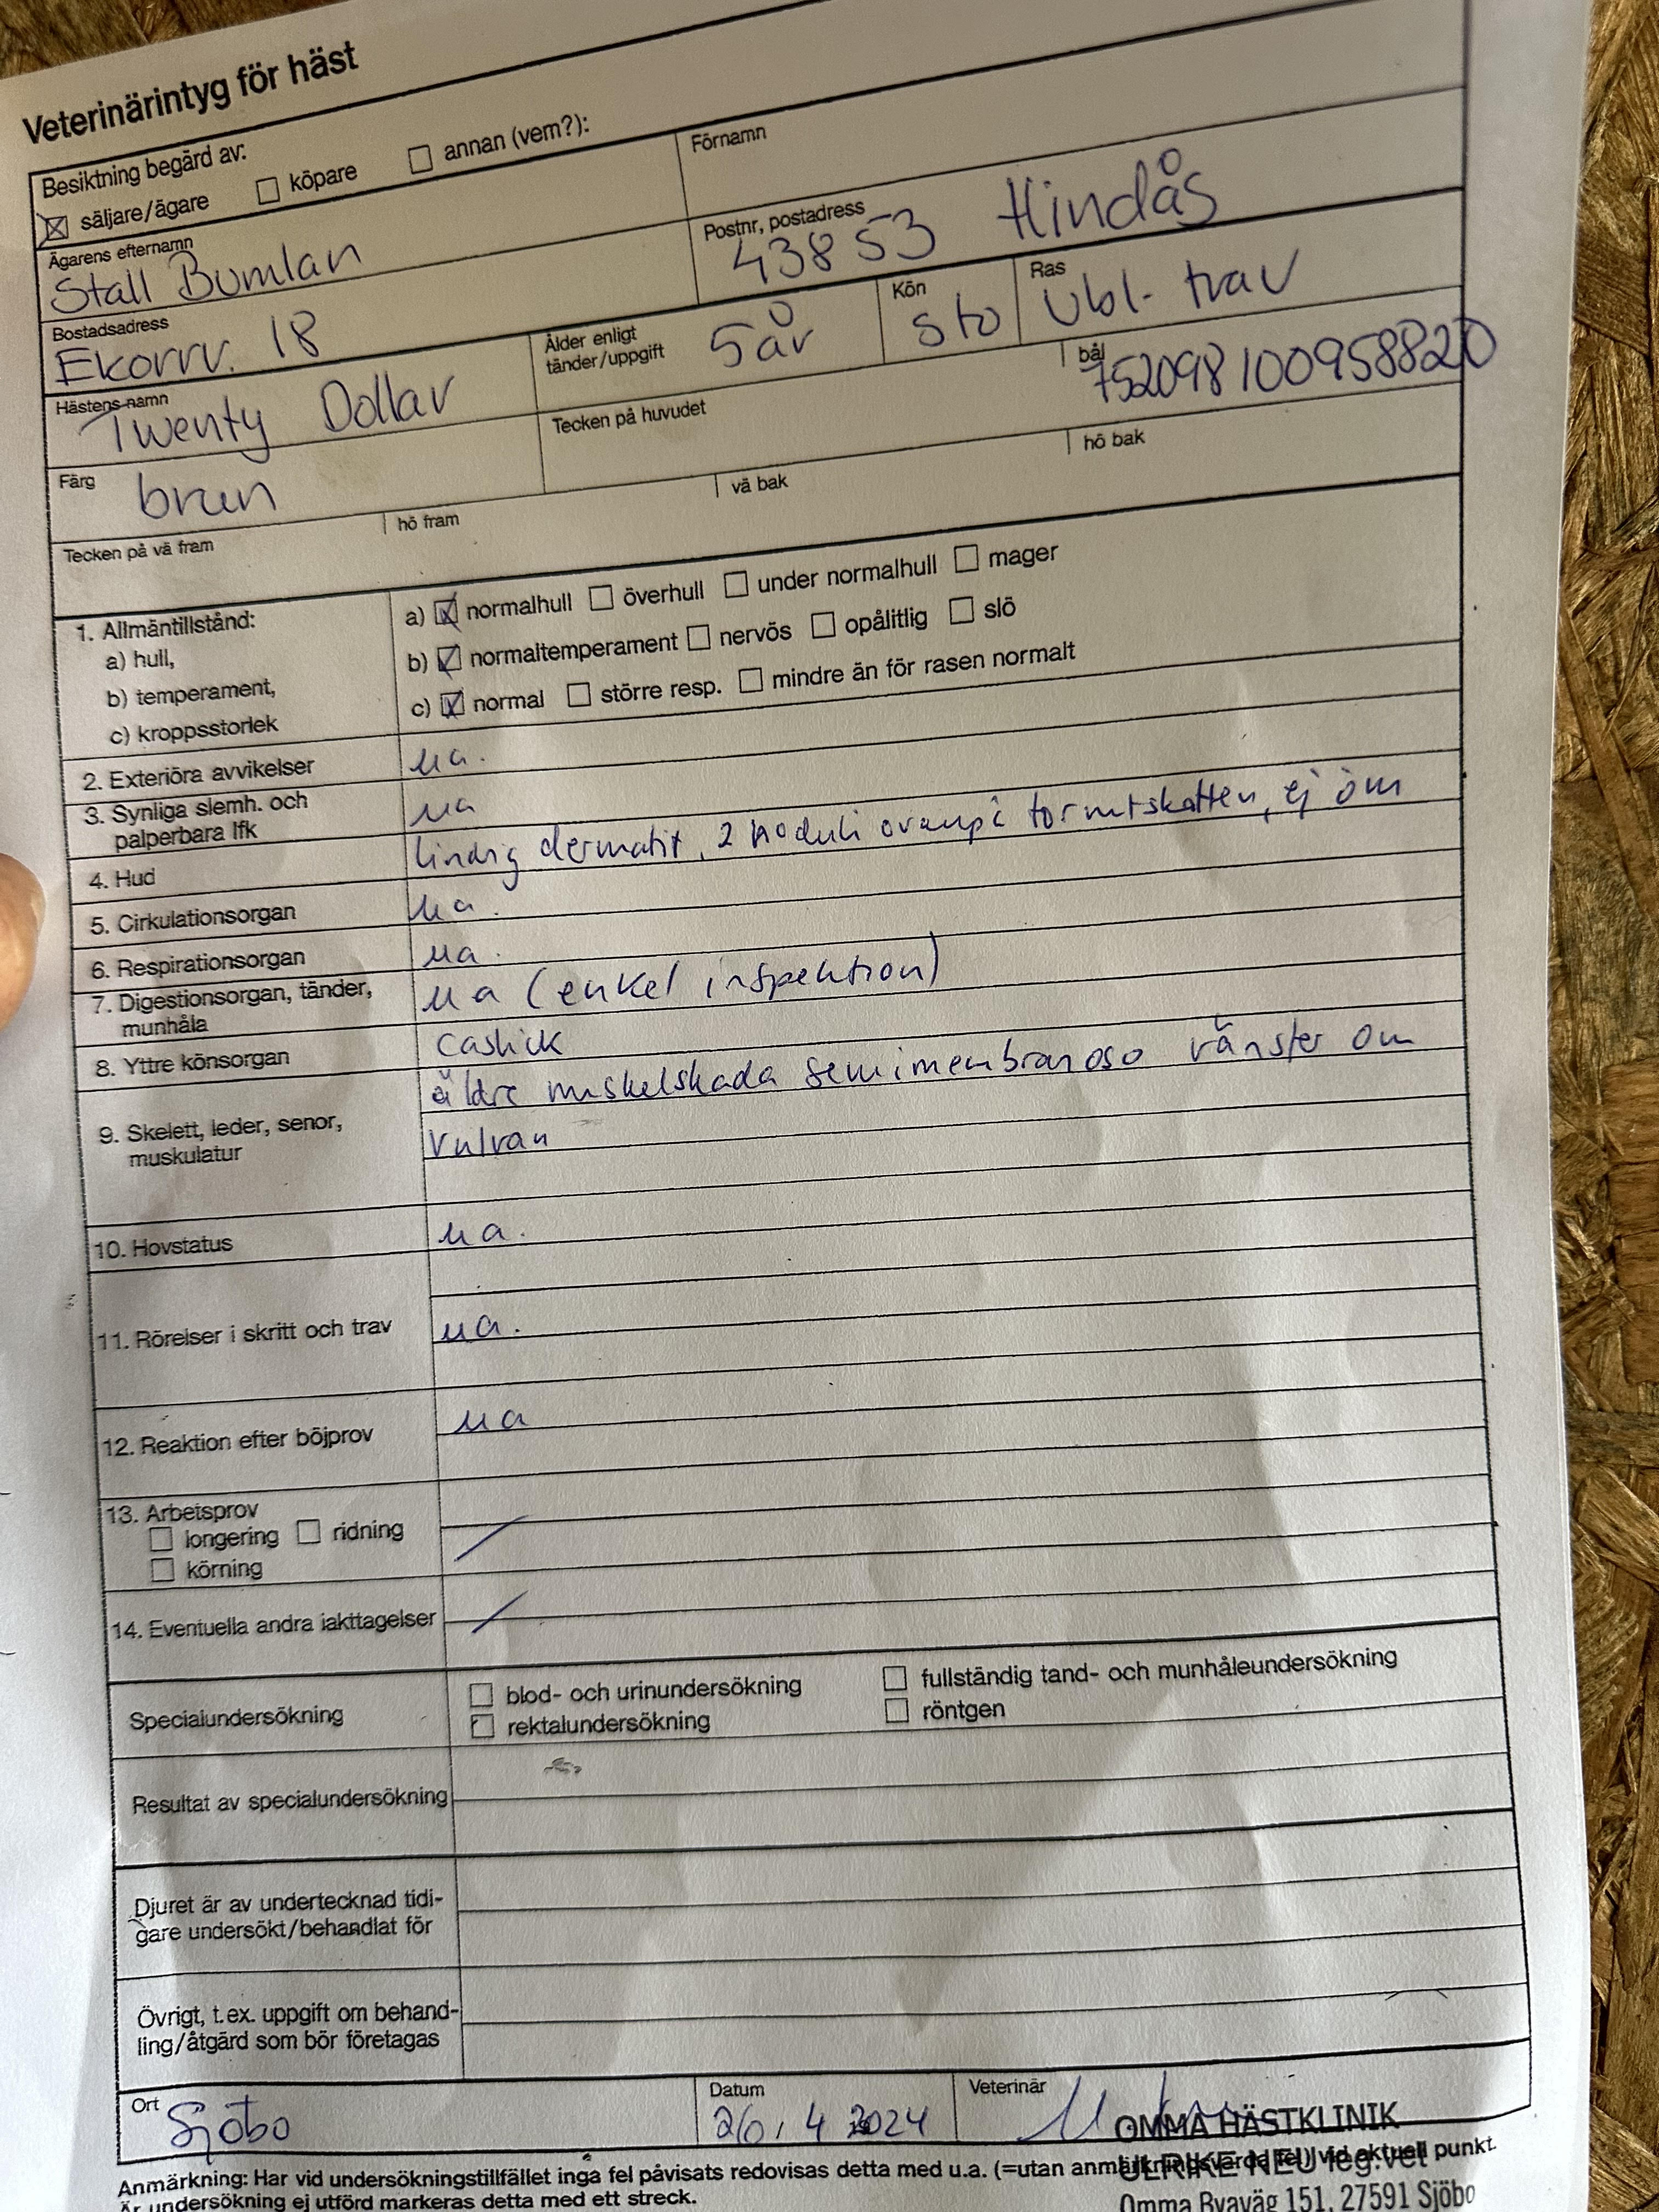 Veterinärintyg för häst
Besiktning begärd av:
säljare/ägare köpare annan (vem?):
Ägarens efternamn Förnamn
Stall Bumlan
Bostadsadress Postnr, postadress
Ekorrv. 18 43853 Hindås
Hästens namn Ålder enligt tänder/uppgift Kön Ras
Twenty Dollar 5 år sto vbl. trav
Färg Tecken på huvudet bål
brun 752098100958820
Tecken på vä fram hö fram vä bak hö bak
1. Allmäntillstånd: a) normalhull överhull under normalhull mager
a) hull,
b) temperament, b) normaltemperament nervös opålitlig slö
c) kroppsstorlek c) normal större resp. mindre än för rasen normalt
2. Exteriöra avvikelser ua.
3. Synliga slemh. och ua
palperbara lfk
4. Hud lindrig dermatit, 2 noduli ej öm
5. Cirkulationsorgan ua.
6. Respirationsorgan ua.
7. Digestionsorgan, tänder, ua (enkel inspektion)
munhåla
8. Yttre könsorgan caslick
9. Skelett, leder, senor, äldre muskelskada semimembranoso vänster om
muskulatur vulvan
10. Hovstatus ua.
11. Rörelser i skritt och trav ua.
12. Reaktion efter böjprov ua
13. Arbetsprov
longering ridning
körning
14. Eventuella andra iakttagelser
Specialundersökning blod- och urinundersökning fullständig tand- och munhåleundersökning
rektalundersökning röntgen
Resultat av specialundersökning
Djuret är av undertecknad tidi-
gare undersökt/behandlat för
Övrigt, t.ex. uppgift om behand-
ling/åtgärd som bör företagas
Ort Datum Veterinär
Sjöbo 26.4 2024
OMMA HÄSTKLINIK
ULRIKE NEU leg.vet
Omma Byaväg 151, 27591 Sjöbo
Anmärkning: Har vid undersökningstillfället inga fel påvisats redovisas detta med u.a. (=utan anmärkningsvärda fel) vid aktuell punkt.
Är undersökning ej utförd markeras detta med ett streck.